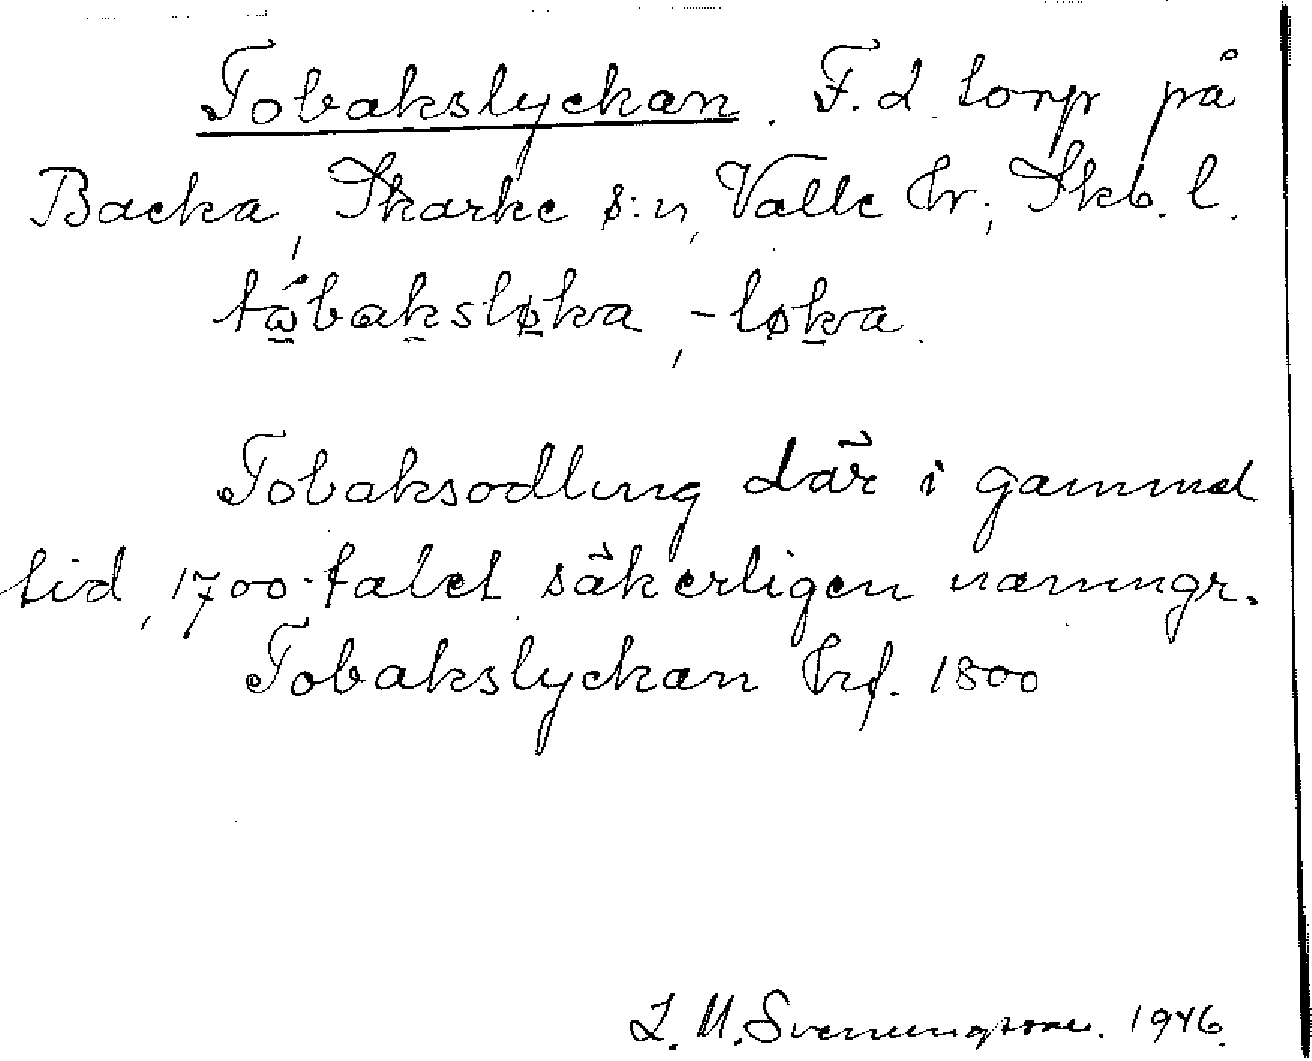 Tobakslyckan. F.d torp på
Backa, Skarke s:n, Valle hr; Skb. l.
tåbaksløka, -løka.
Tobaksodling där i gammal
tid, 1700-talet säkerligen
Tobakslyckan hrf. 1800
L. M. Svenungsson. 1946.